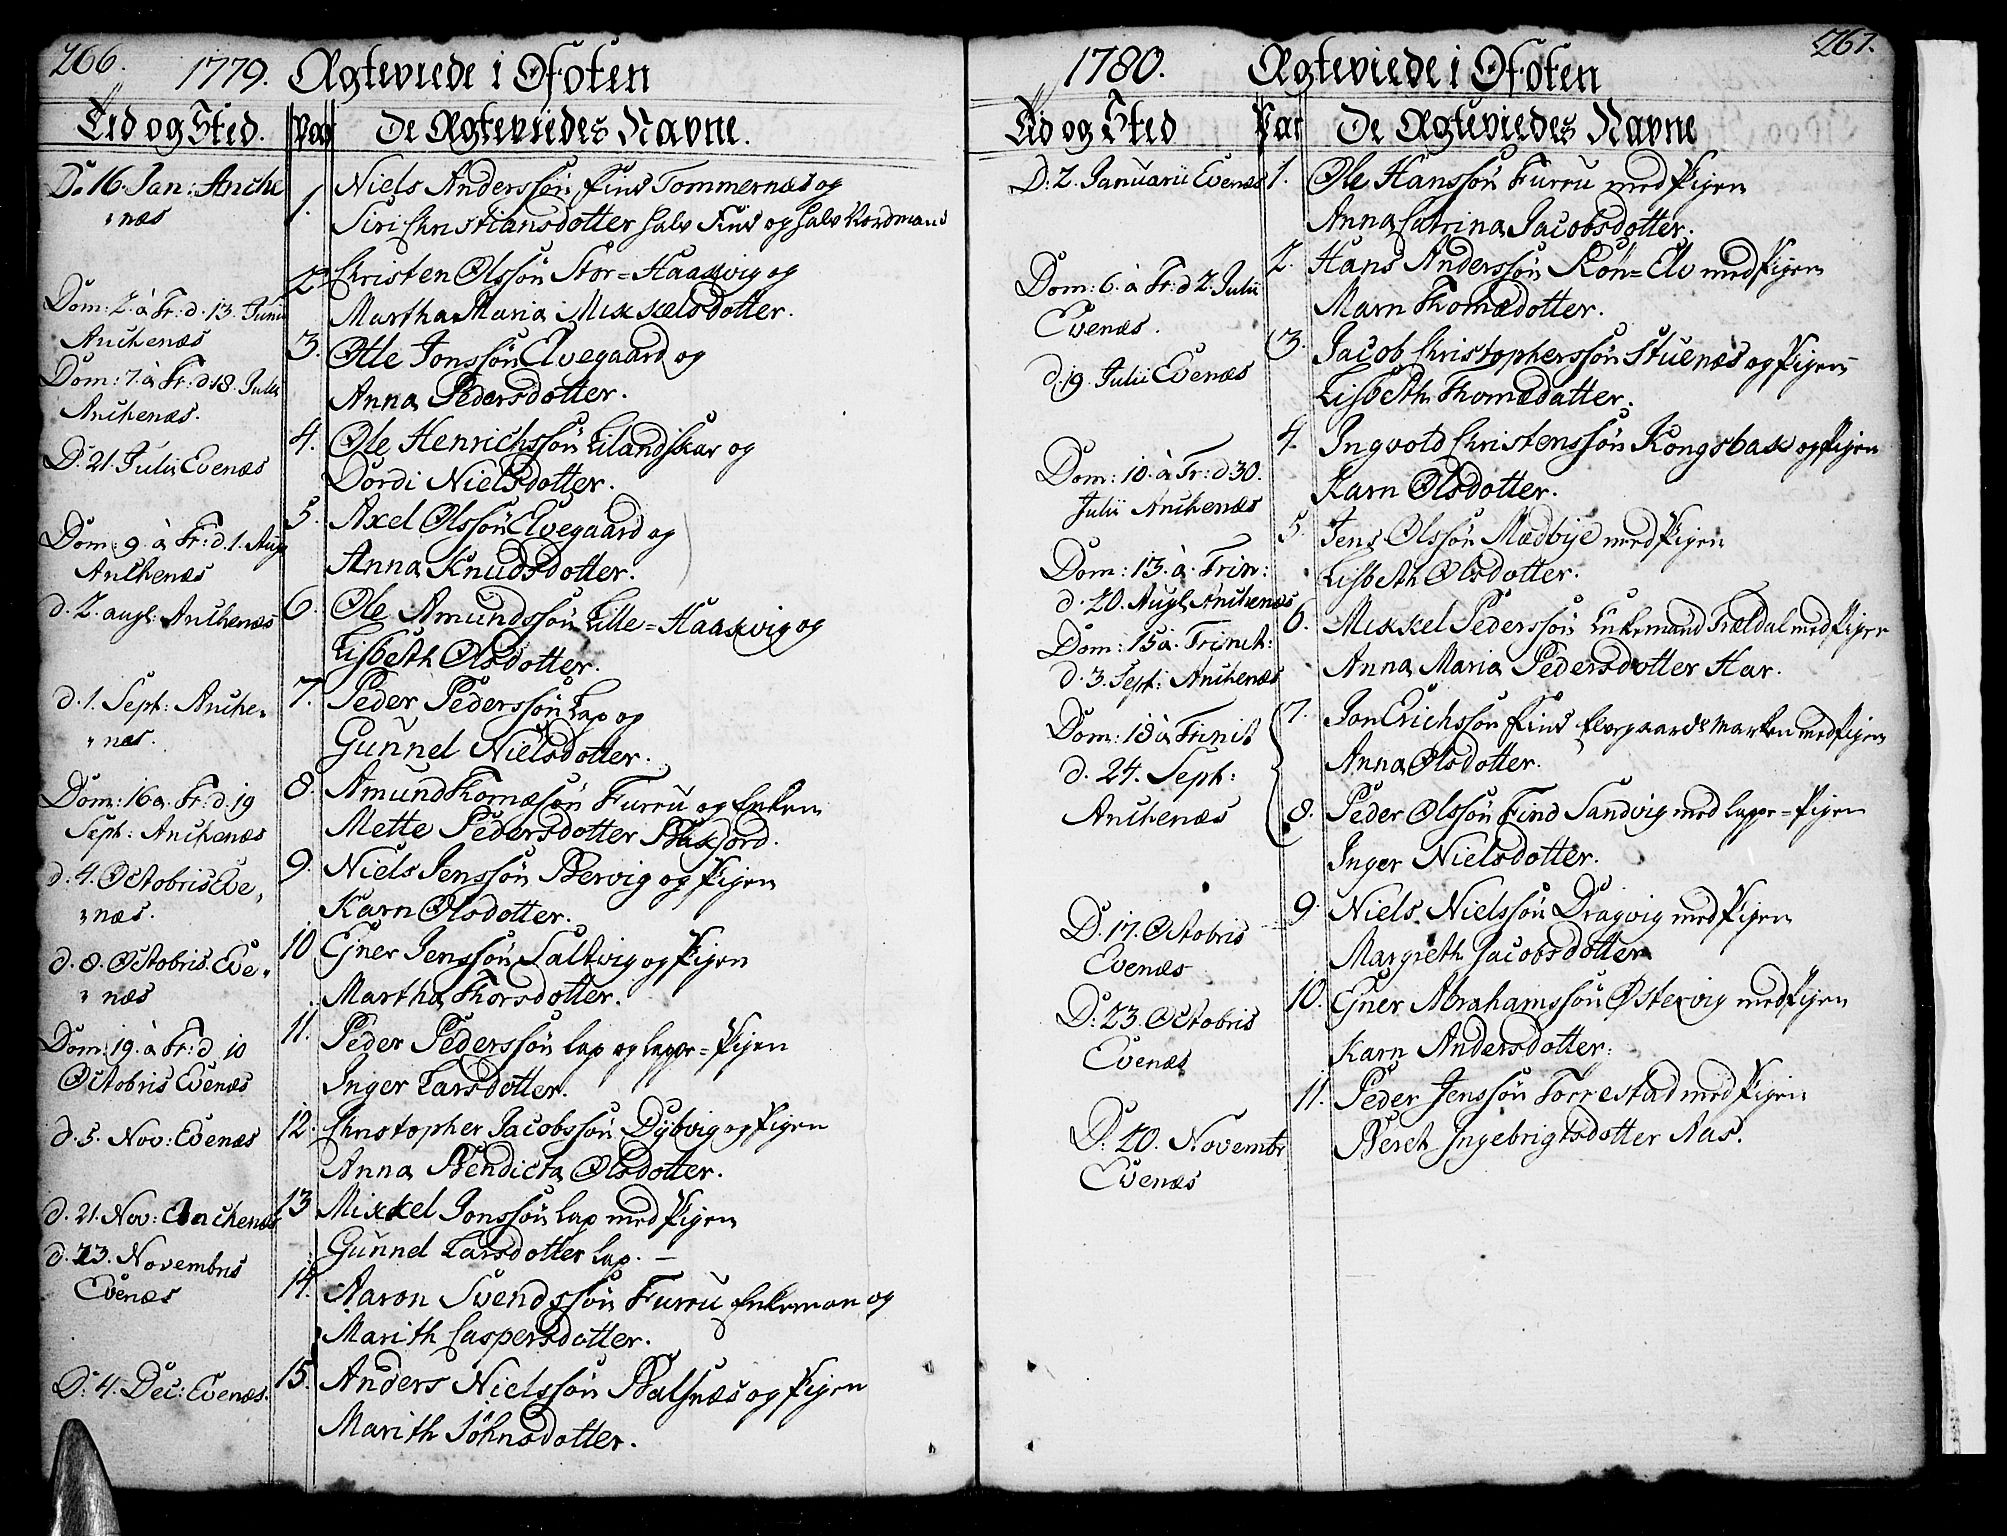 266.
1779. Ægteviede i Ofoten
Tid og Sted. Par De Ægteviedes Navne.
D. 16. Jan: Anche
næs
1. Niels Anderssøn Find Tommernæs og
Siri Christiansdotter halv Find og halv Nordmand
Dom: 2. à Tr: d. 13. Junii
Anchenæs
2. Christen Olssøn Stor=Haaxvig og
Martha Maria Mixkelsdotter.
Dom: 7. à Tr: d 18. Julii
Anchenæs.
3. Olle Jonssøn Elvegaard og
Anna Pedersdotter.
D. 21. Julii Evenæs
4. Ole Henrichssøn Lilandskar og
Dordi Nielsdotter.
Dom: 9. à Tr: d. 1. Aug
Anchenæs
5. Axel Olssøn Elvegaard og
Anna Knudsdotter.
d. 2. augl: Anchenæs
6. Ole Amundssøn Lille=Haaxvig og
Lisbeth Olsdotter.
d. 1. Sept: Anche
næs.
7. Peder Pederssøn Lap og
Gunnel Nielsdotter.
Dom: 16 a. Tr: d. 19
Sept: Anchenæs
8. Amund Thomæsøn Furru og Enken
Mette Pedersdotter Boxfjord.
d. 4. Octobris Eve
næs.
9. Niels Jenssøn Bervig og Pigen
Karn Olsdotter.
d. 8. Octobris Eve
næs
10 Ejner Jenssøn Saltvig og Pigen
Martha Thorsdotter.
Dom: 19. à Tr: d 10
Octobris Evenæs
11. Peder Pederssøn Lap og Lappe=Pigen
Inger Larsdotter.
d. 5. Nov: Evenæs
12. Christopher Jacobssøn Dybvig og Pigen
Anna Bendicta Olsdotter.
d. 21. Nov: Anchenæs
13 Mixkel Jonssøn Lap med Pigen
Gunnel Larsdotter Lap. –
d. 23. Novembris
Evenæs
14. Aaron Svendssøn Furru Enkeman og
Marith Caspersdotter.
D. 4. Dec: Evenæs.
15. Anders Nielssøn Balsnæs og Pigen
Marith Johnsdotter.
267.
1780. Ægteviede i Ofoten
Tid og Sted Par De Ægteviedes Navne
D: 2. Januarii Evenæs
1. Ole Hanssøn Furru med Pigen
Anna Catrina Jacobsdotter.
Dom: 6. à Tr: d 2. Julii
Evenæs.
2. Hans Anderssøn Røn=Elv med Pigen
Marn Thomædotter.
d. 19. Julii Evenæs
3. Jacob Christopherssøn Stuenæs og Pigen
Lisbeth Thomædatter.
Dom: 10. à Tr: d: 30.
Julii Anchenæs
4. Ingvold Christenssøn Kongsbax og Pigen
Karn Olsdotter.
Dom: 13. à. Trin:
d. 20. Augl Anchenæs
5. Jens Olssøn Mædbye med Pigen
Lisbeth Olsdotter.
Dom: 15 à. Trinit:
d. 3. Sept: Anchenæs
6. Mixkel Pederssøn Enkemand Trældal med Pigen
Anna Maria Pedersdotter Har.
Dom: 18 à Trinit
d. 24. Sept:
Anchenæs
7. Jon Erichssøn Find Elvegaards Marken med Pigen
Anna Olsdotter.
8. Peder Olssøn Find Sandvig med Lappe=Pigen
Inger Nielsdotter.
D. 17. Octobris
Evenæs
9. Niels Nielssøn Dragvig med Pigen
Margreth Jacobsdotter
D: 23. Octobris
Evenæs
10. Ejner Abrahamssøn Østervig med Pigen
Karn Andersdotter.
D: 20. Novembr
Evenæs
11. Peder Jenssøn Forrestad med Pigen
Beret Ingebrigtsdotter Aas.